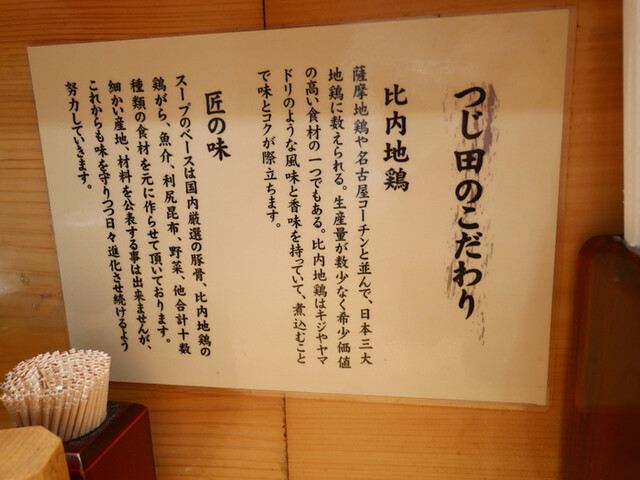 つじ田のこだわり
比内地鶏
薩摩地鶏や名古屋コーチンと並んで、日本三大
地鶏に数えられる。生産量が数少なく希少価値
の高い食材の一つでもある。比内地鶏はキジやヤマ
ドリのような風味と香味を持っていて、煮込むこと
で味とコクが際立ちます。
匠の味
スープのベースは国内厳選の豚骨、比内地鶏の
鶏がら、魚介、利尻昆布、野菜、他合計十数
種類の食材を元に作らせて頂いております。
細かい産地、材料を公表する事は出来ませんが、
これからも味を守りつつ日々進化させ続けるよう
努力していきます。